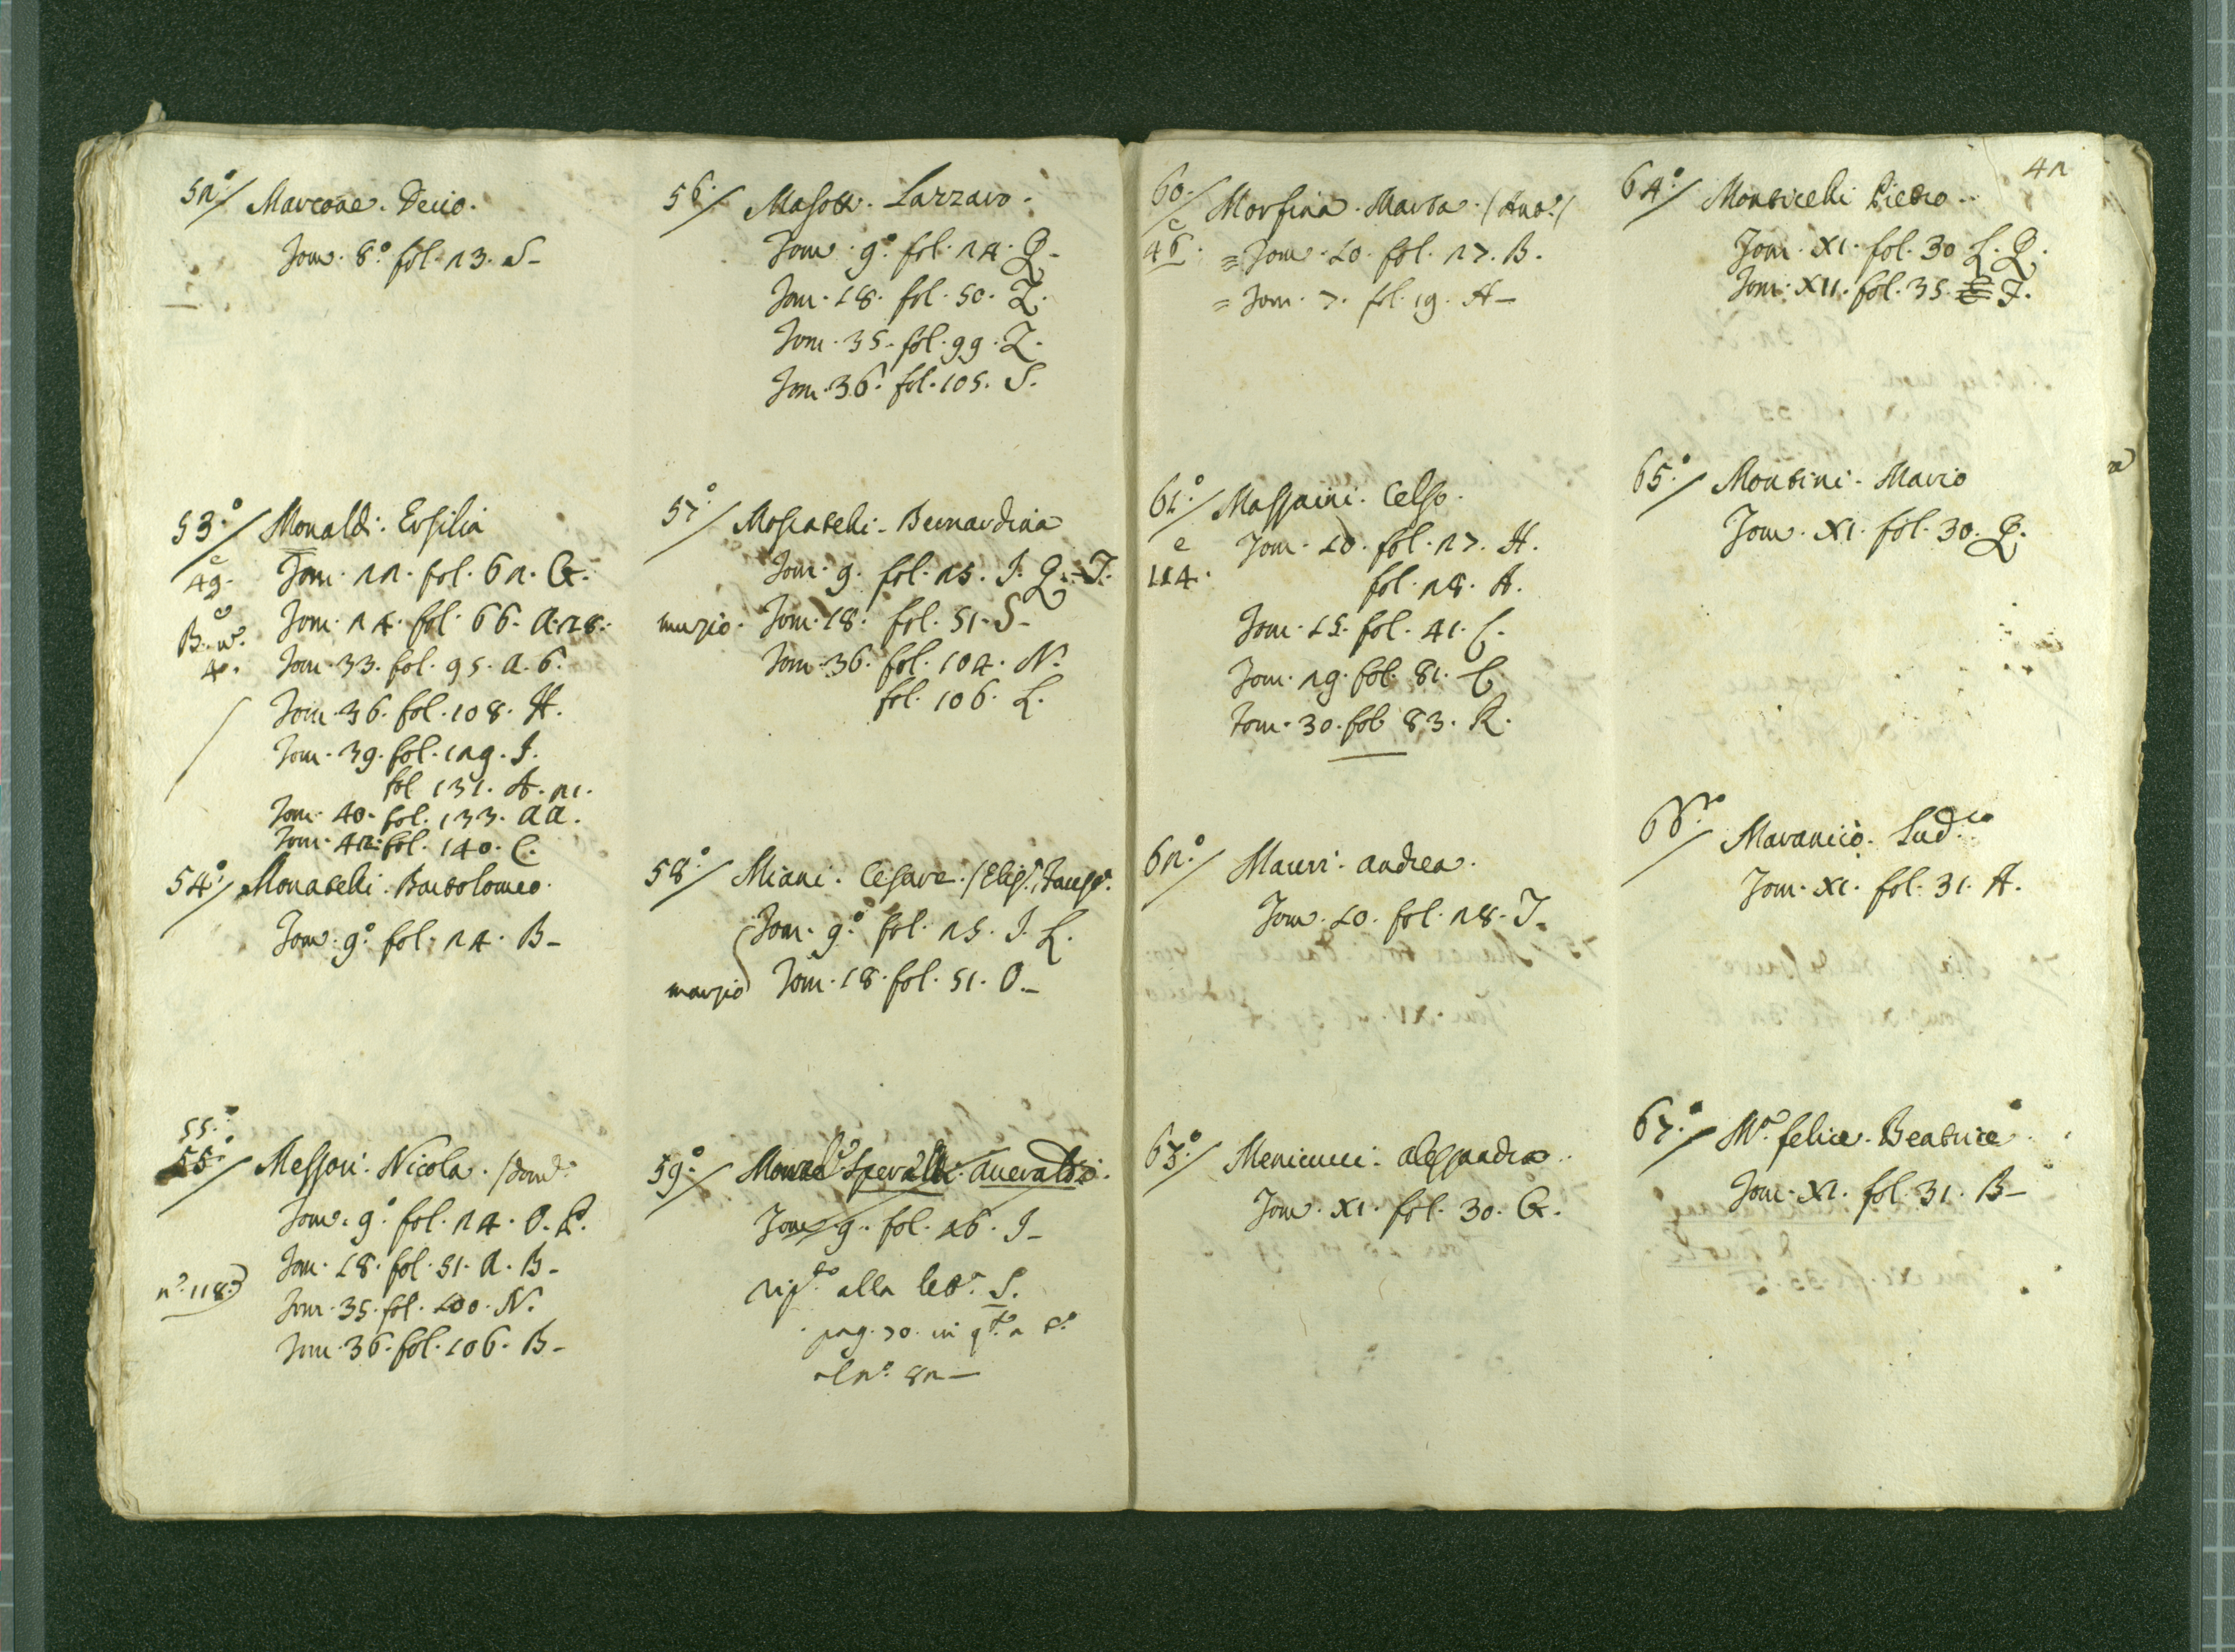 52º/ Marcone. Decio.
Tom. 8º fol. 23. S-
53º/ Monaldi. Ersilia
e 49. Tom. 22. fol. 62. G.
Tom. 24. fol. 66. a. 28.
Tom. 33. fol. 95. a. 6.
Tom. 36. fol. 108. H.
Tom. 39. fol. 129. I.
fol 131. A. 21.
Tom. 40. fol. 133. aa.
Tom. 42. fol. 140. C.
54º/ Monatelli. Bartolomeo.
Tom. 9º fol. 24. B-
55º
55º/ Messori. Nicola. /Dom.
Tom. 9º fol. 24. O. P.
Tom. 18. fol. 51. A. B-
nº 118) Tom. 35. fol. 100. N.
Tom. 36. fol. 106. B-
56º/ Masotti. Lazzaro.
Tom. 9º fol. 24. Q-
Tom. 18. fol. 50. Z.
Tom. 35. fol. 99. Z.
Tom. 36. fol. 105. S.
57º/ Moscatelli. Bernardina
Tom. 9. fol. 25. I. Q. T.
muzio. Tom. 18. fol. 51. S-
Tom. 36. fol. 104. N.
fol. 106. L.
58º/ Miani. Cesare.
Tom. 9º fol. 25. I. L.
marzio Tom. 18. fol. 51. O.-
59º/ Speraldi. Averaldi.
Tom. 9. fol. 26. I-
alla lett. S.
pag. 70. in
al nº 82-
60º/ Morfina. Marta. /Ant./
e 46. = Tom. 10. fol. 27. B.
= Tom. 7. fol. 19. A-
61º/ Massaini. Celso.
e Tom. 10. fol. 27. H.
114. fol. 28. A.
Tom. 15. fol. 41. C.
Tom. 29. fol. 81. C.
Tom. 30. fol 83. R.
62º/ Mauri. Andrea.
Tom. 10. fol. 28. T.
63º/ Menicucci. Alessandro.
Tom. XI. fol. 30. G.
42
64º/ Monticelli Pietro.
Tom. XI. fol. 30 L. Q.
Tom. XII. fol. 35. T.
65º/ Montini. Mario
Tom. XI. fol. 30. Q.
66º/ Marancio. Lud.co
Tom. XI. fol. 31. A.
67º/ Mº felice. Beatrice
Tom. XI. fol. 31. B-